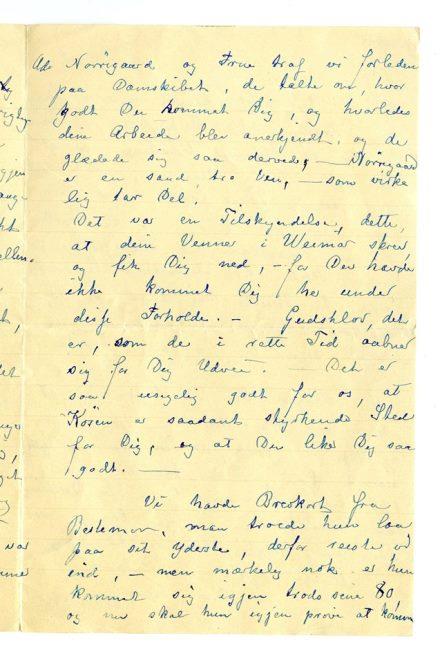 Ade Nörrigaard og Frue traf vi forleden
paa Damskibet, de talte om, hvor
godt Du kommet Dig, og hvorledes
dine Arbeide blev anerkjendt, og de
glædede sig saa derved, — Nörregaard
er en sand, tro Ven, — som virke
lig tar Del.
Det var en Tilskyndelse, dette,
at dine Venner i Weimar skrev
og fik Dig ned, — for Du havde
ikke kommet Dig he under
disse Forholde. — Gudsklov, det
er, som de i rette Tid aabner
sig for Dig Udvei. — Det er
saa usigelig godt for os, at
Kösen er saadant styrkende Sted
for Dig, og at Du like Dig saa
godt. —
Vi havde Brevkort fra
Bestemor, man troede hun laa
paa sit yderste, derfor reiste vi
ind, — men mækelig nok er hun
kommet sig igjen trods sine 80
og nu skal hun igjen prøve at komme